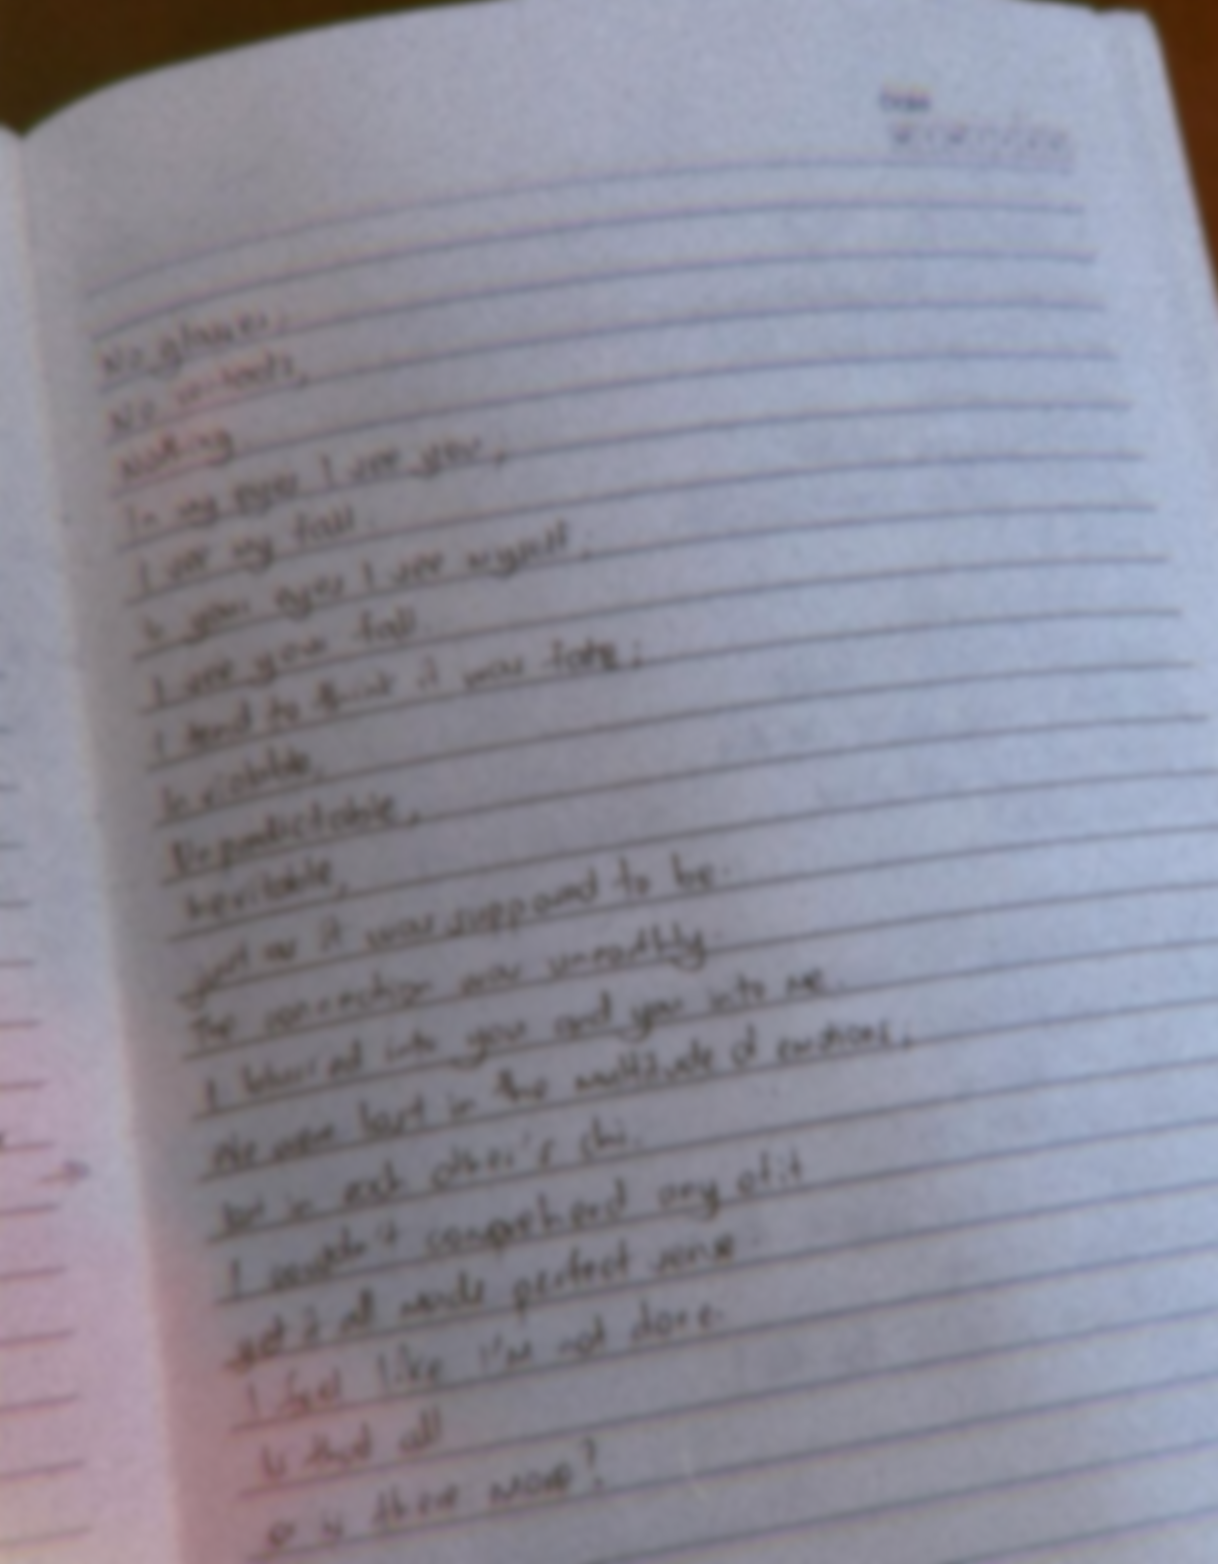 No glances,
No
Nothing
In my eyes I see you,
I see my fall.
In your eyes I see myself,
I see your fall.
I tend to think it was fate;
Inviolable,
Unpredictable,
Inevitable,
just as it was supposed to be.
The connection was unearthly.
I blurred into you and you into me.
We were lost in the multitude of emotions,
lost in each other's chi.
I couldn't comprehend any of it
yet it all made perfect sense.
I feel like I'm not done.
Is that all
or is there more?